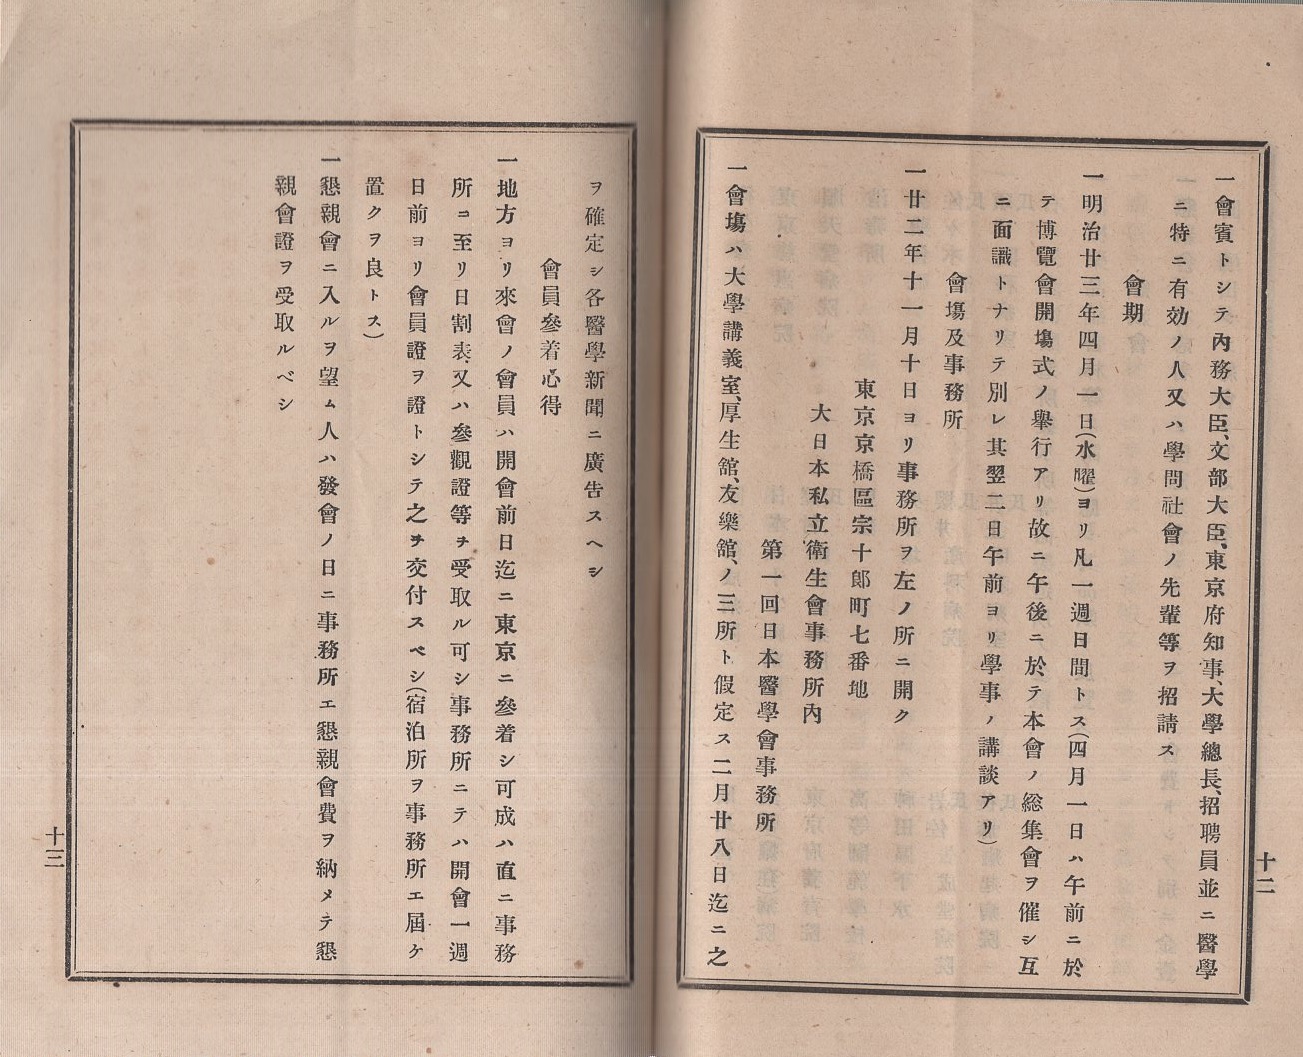 一會賓トシテ內務大臣、文部大臣、東京府知事、大學總長、招聘員並ニ醫學
ニ特ニ有効ノ人又ハ學問社會ノ先輩等ヲ招請ス
會期
一明治廿三年四月一日(水曜)ヨリ凡一週日間トス(四月一日ハ午前ニ於
テ博覽會開塲式ノ擧行アリ故ニ午後ニ於テ本會ノ総集會ヲ催シ互
ニ面識トナリテ別レ其翌二日午前ヨリ學事ノ講談アリ)
會塲及事務所
一廿二年十一月十日ヨリ事務所ヲ左ノ所ニ開ク
東京京橋區宗十郞町七番地
大日本私立衛生會事務所內
第一回日本醫學會事務所
一會塲ハ大學講義室、厚生舘、友樂舘、ノ三所ト假定ス二月廿八日迄ニ之
十二
ヲ確定シ各醫學新聞ニ廣告スヘシ
會員參着心得
一地方ヨリ來會ノ會員ハ開會前日迄ニ東京ニ參着シ可成ハ直ニ事務
所ニ至リ日割表又ハ參觀證等ヲ受取ル可シ事務所ニテハ開會一週
日前ヨリ會員證ヲ證トシテ之ヲ交付スベシ(宿泊所ヲ事務所エ屆ケ
置クヲ良トス)
一懇親會ニ入ルヲ望ム人ハ發會ノ日ニ事務所エ懇親會費ヲ納メテ懇
親會證ヲ受取ルベシ
十三